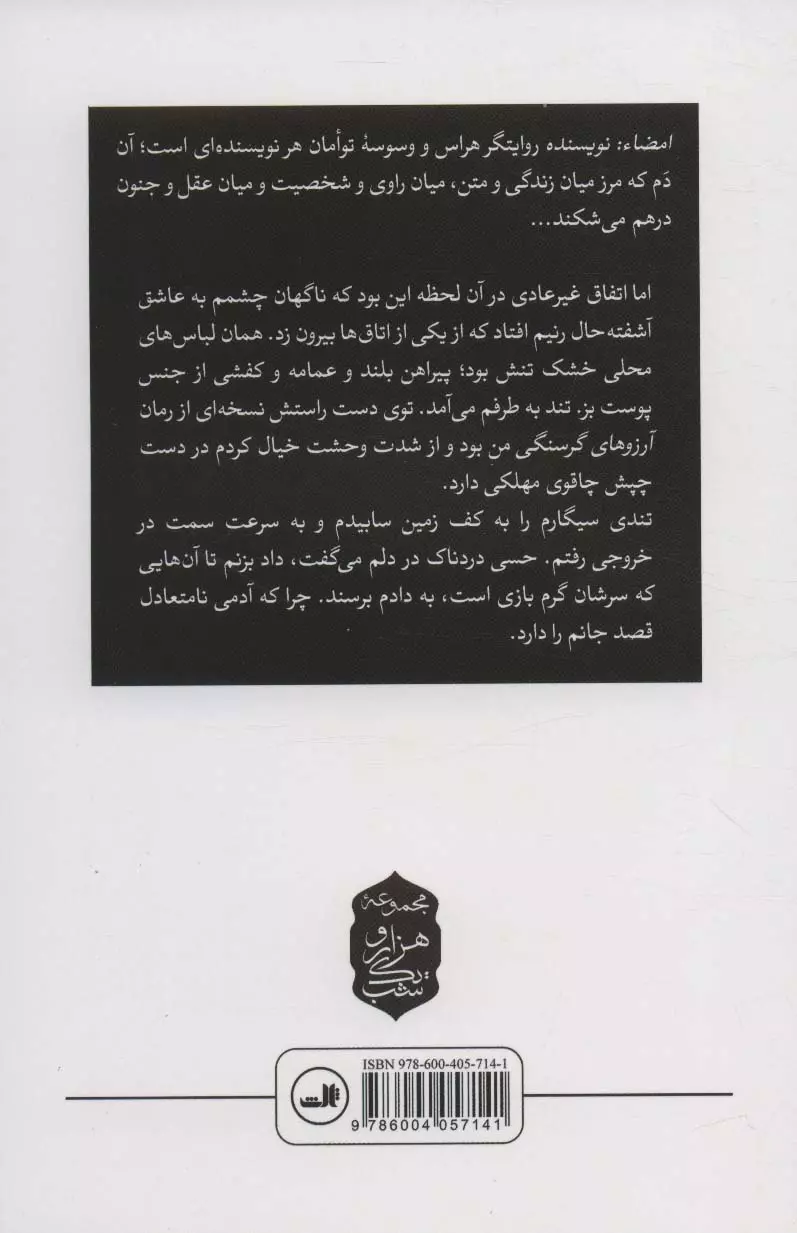 امضاء: نویسنده روایتگر هراس و وسوسهٔ توأمان هر نویسنده‌ای است؛ آن
دَم که مرز میان زندگی و متن، میان راوی و شخصیت و میان عقل و جنون
درهم می‌شکند...
اما اتفاق غیرعادی در آن لحظه این بود که ناگهان چشمم به عاشق
آشفته‌حال رنیم افتاد که از یکی از اتاق‌ها بیرون زد. همان لباس‌های
محلی خشک تنش بود؛ پیراهن بلند و عمامه و کفشی از جنس
پوست بز. تند به طرفم می‌آمد. توی دست راستش نسخه‌ای از رمان
آرزوهای گرسنگی من بود و از شدت وحشت خیال کردم در دست
چپش چاقوی مهلکی دارد.
تندی سیگارم را به کف زمین سابیدم و به سرعت سمت در
خروجی رفتم. حسی دردناک در دلم می‌گفت، داد بزنم تا آن‌هایی
که سرشان گرم بازی است، به دادم برسند. چرا که آدمی نامتعادل
قصد جانم را دارد.
مجموعهٔ
هزار و
یک
شب
ISBN 978-600-405-714-1
ثالث
9 786004 057141